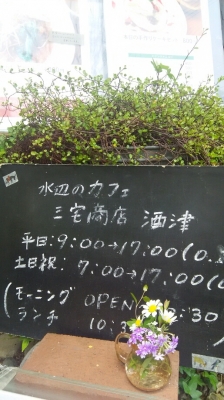 水辺のカフェ
三宅商店 酒津
平日:9:00→17:00(O.
土日祝:7:00→17:00(
(モーニング OPEN :30
ランチ 10:3